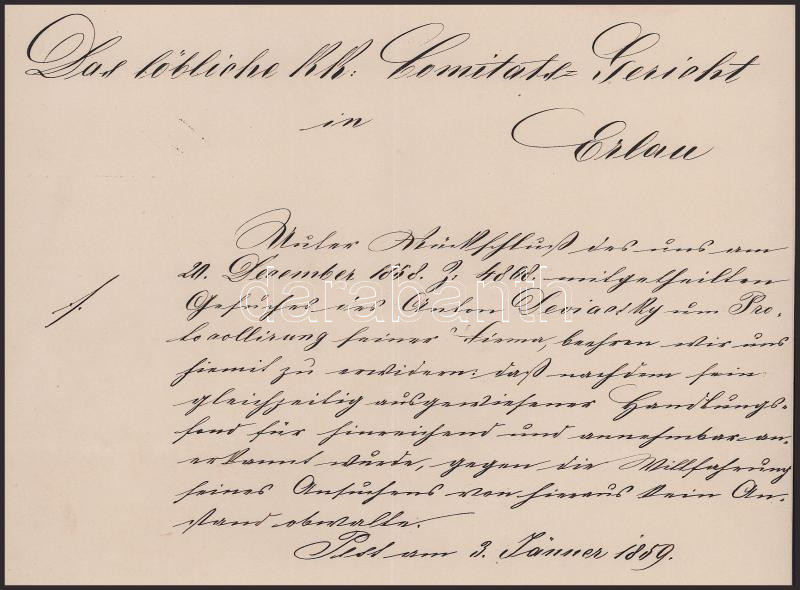 Das löbliche kk: Comitats=Gericht
in
Erlau
Unter Rückschluß des uns am
20. Dezember 1858. Z: 4868. mitgetheilten
Gesuches des Anton um Pro-
tocollirung seiner Firma, beehren wir uns
hiemit zu erwidern: daß nachdem sein
gleichzeitig ausgewiesener Handlungs-
fond für hinreichend und annehmbar an-
erkannt wurde, gegen die Willfahrung
seines Ansuchens von hieraus kein An-
stand obwalte.
Pest am 3. Jänner 1859.
darabanth